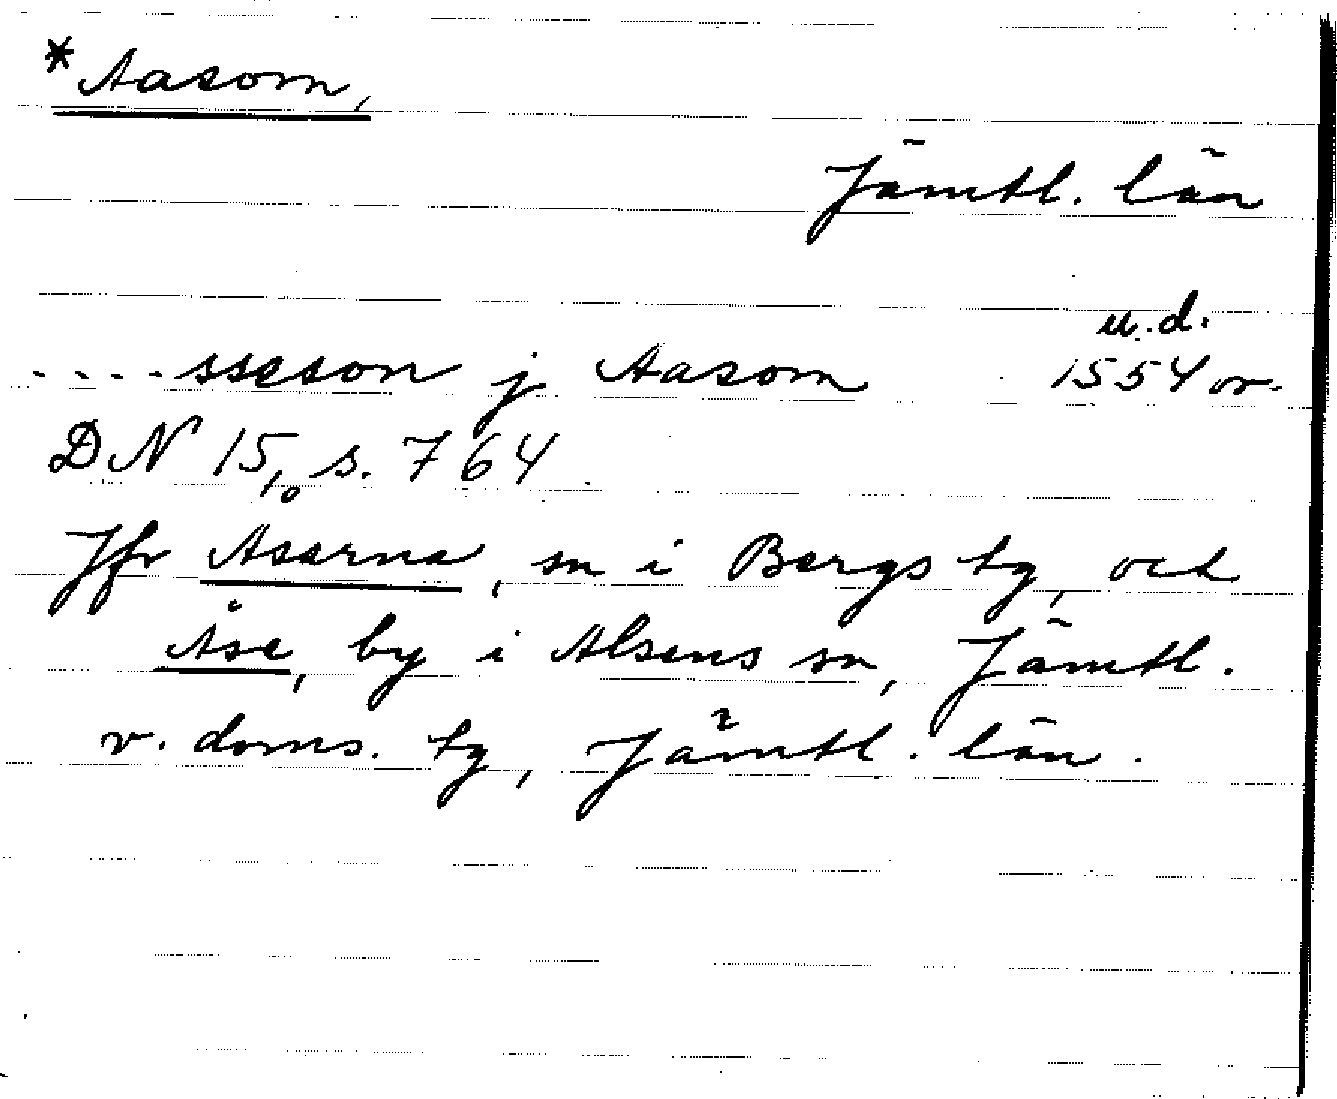 *Aasom,
Jämtl. län
u.d.
....sseson j Aasom 1554 or.
DN 15, s. 764
Jfr Åsarna, sn i Bergs tg, och
Åse, by i Alsens sn, Jämtl.
v. doms. tg, Jämtl. län.